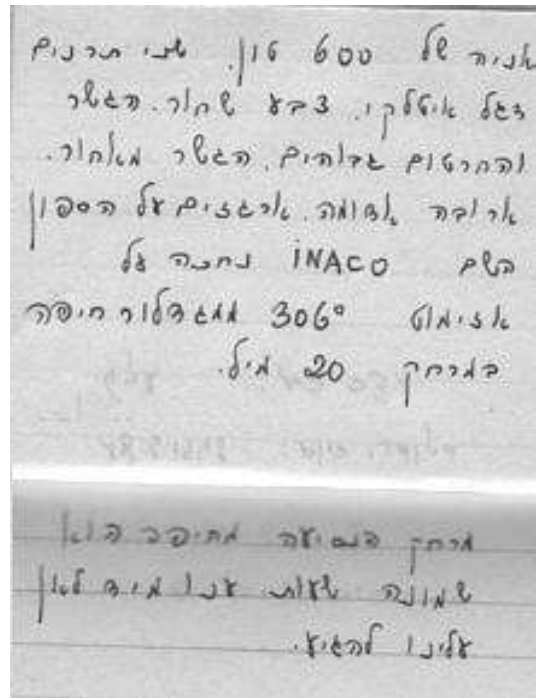 אניה של 600 טון. שני תרנים
דגל איטלקי. צבע שחור. הגשר
והחרטום גבוהים. הגשר מאחור.
ארובה אדומה. ארגזים על הספון
השם INACO נחנה על
אזימוט 306° ממגדלור חיפה
במרחק 20 מיל.
מרחק הנסיעה מחיפה הוא
שמונה שעות. ענו מיד לאן
עלינו להגיע.